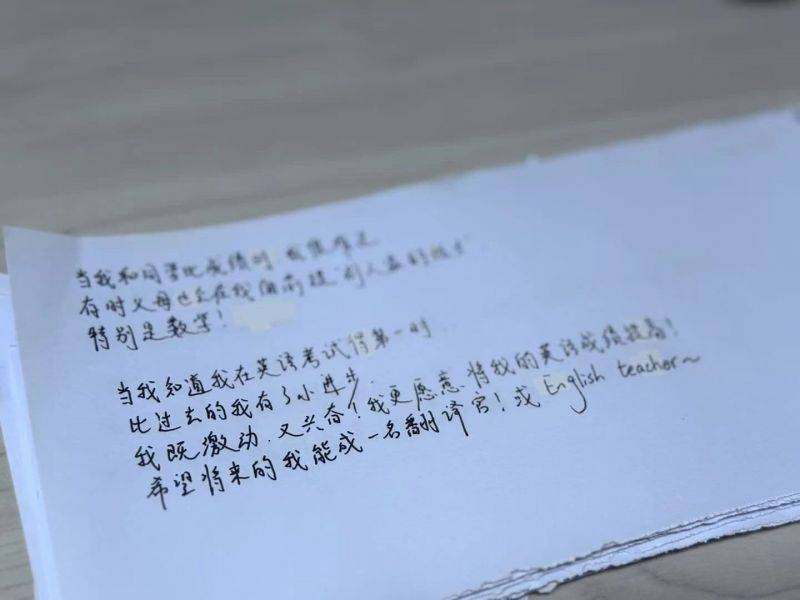 当我和同学比成绩时,我很难过
有时父母也会在我面前提“别人家的孩子”
特别是数学!
当我知道我在英语考试得第一时
比过去的我有了小进步,
我既激动,又兴奋!我更愿意将我的英语成绩提高!
希望将来的我能成一名翻译官!或English teacher~